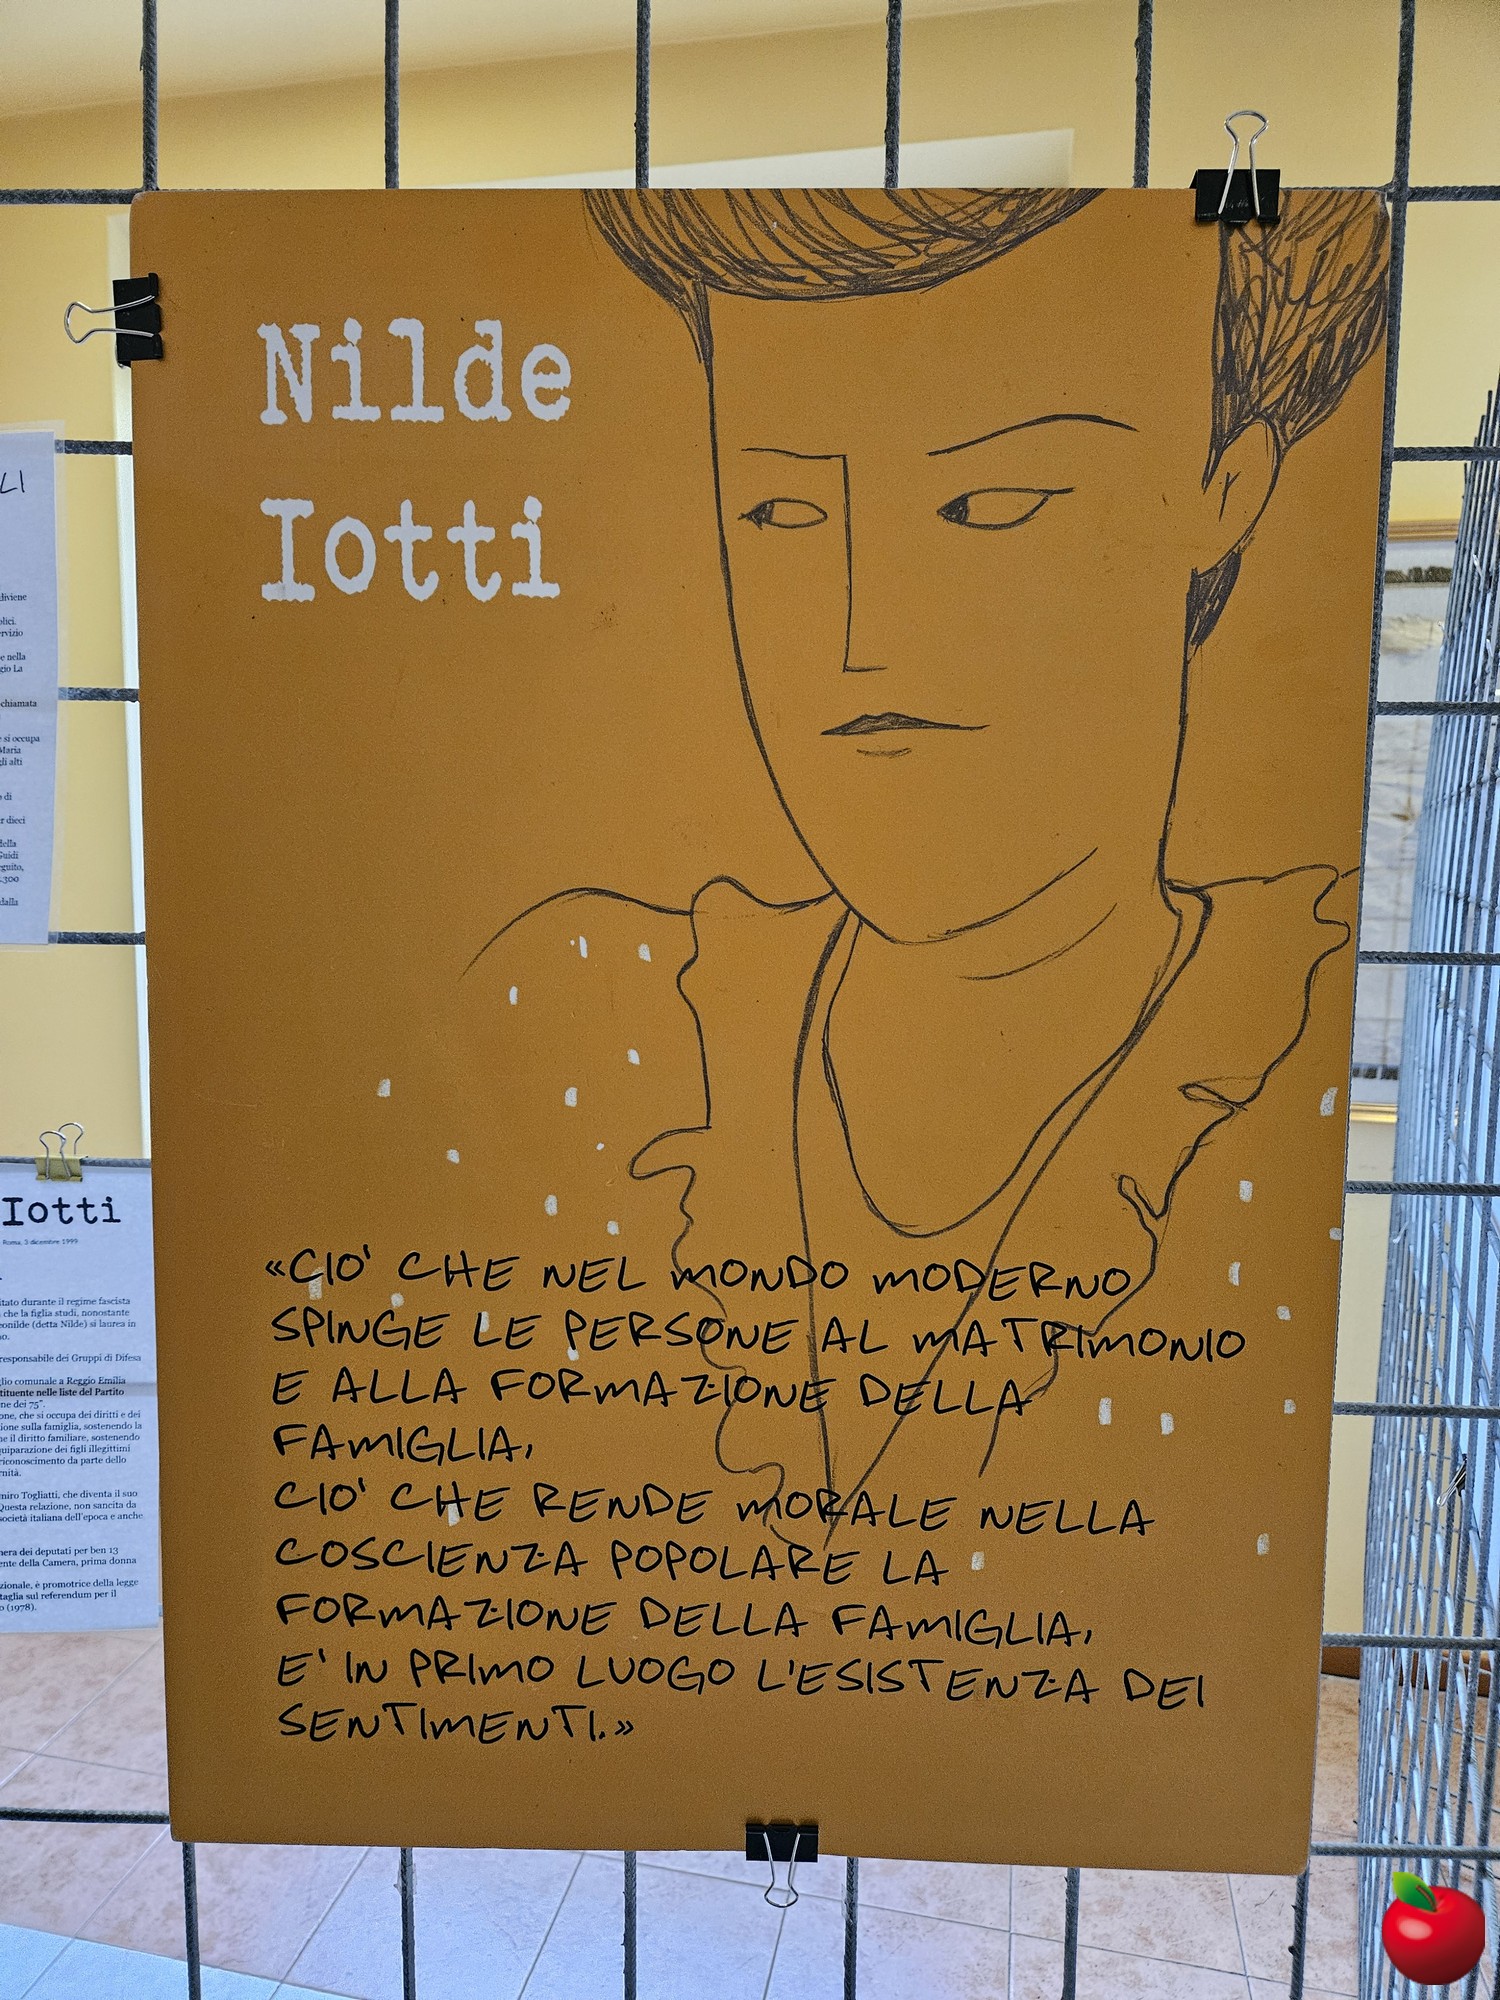 Nilde
Iotti
«CIO' CHE NEL MONDO MODERNO
SPINGE LE PERSONE AL MATRIMONIO
E ALLA FORMAZIONE DELLA
FAMIGLIA,
CIO' CHE RENDE MORALE NELLA
COSCIENZA POPOLARE LA
FORMAZIONE DELLA FAMIGLIA,
E' IN PRIMO LUOGO L'ESISTENZA DEI
SENTIMENTI.»
LI
diviene
e nella
gio La
chiamata
si occupa
Maria
gli alti
di
r dieci
della
Guidi
1.300
dalla
Iotti
Roma, 3 dicembre 1999
tato durante il regime fascista
che la figlia studi, nonostante
eonilde (detta Nilde) si laurea in
responsabile dei Gruppi di Difesa
glio comunale a Reggio Emilia
tituente nelle liste del Partito
ne dei 75".
one, che si occupa dei diritti e dei
ione sulla famiglia, sostenendo la
e il diritto familiare, sostenendo
quiparazione dei figli illegittimi
riconoscimento da parte dello
rnità.
miro Togliatti, che diventa il suo
Questa relazione, non sancita da
società italiana dell'epoca e anche
mera dei deputati per ben 13
ente della Camera, prima donna
zionale, è promotrice della legge
taglia sul referendum per il
o (1978).